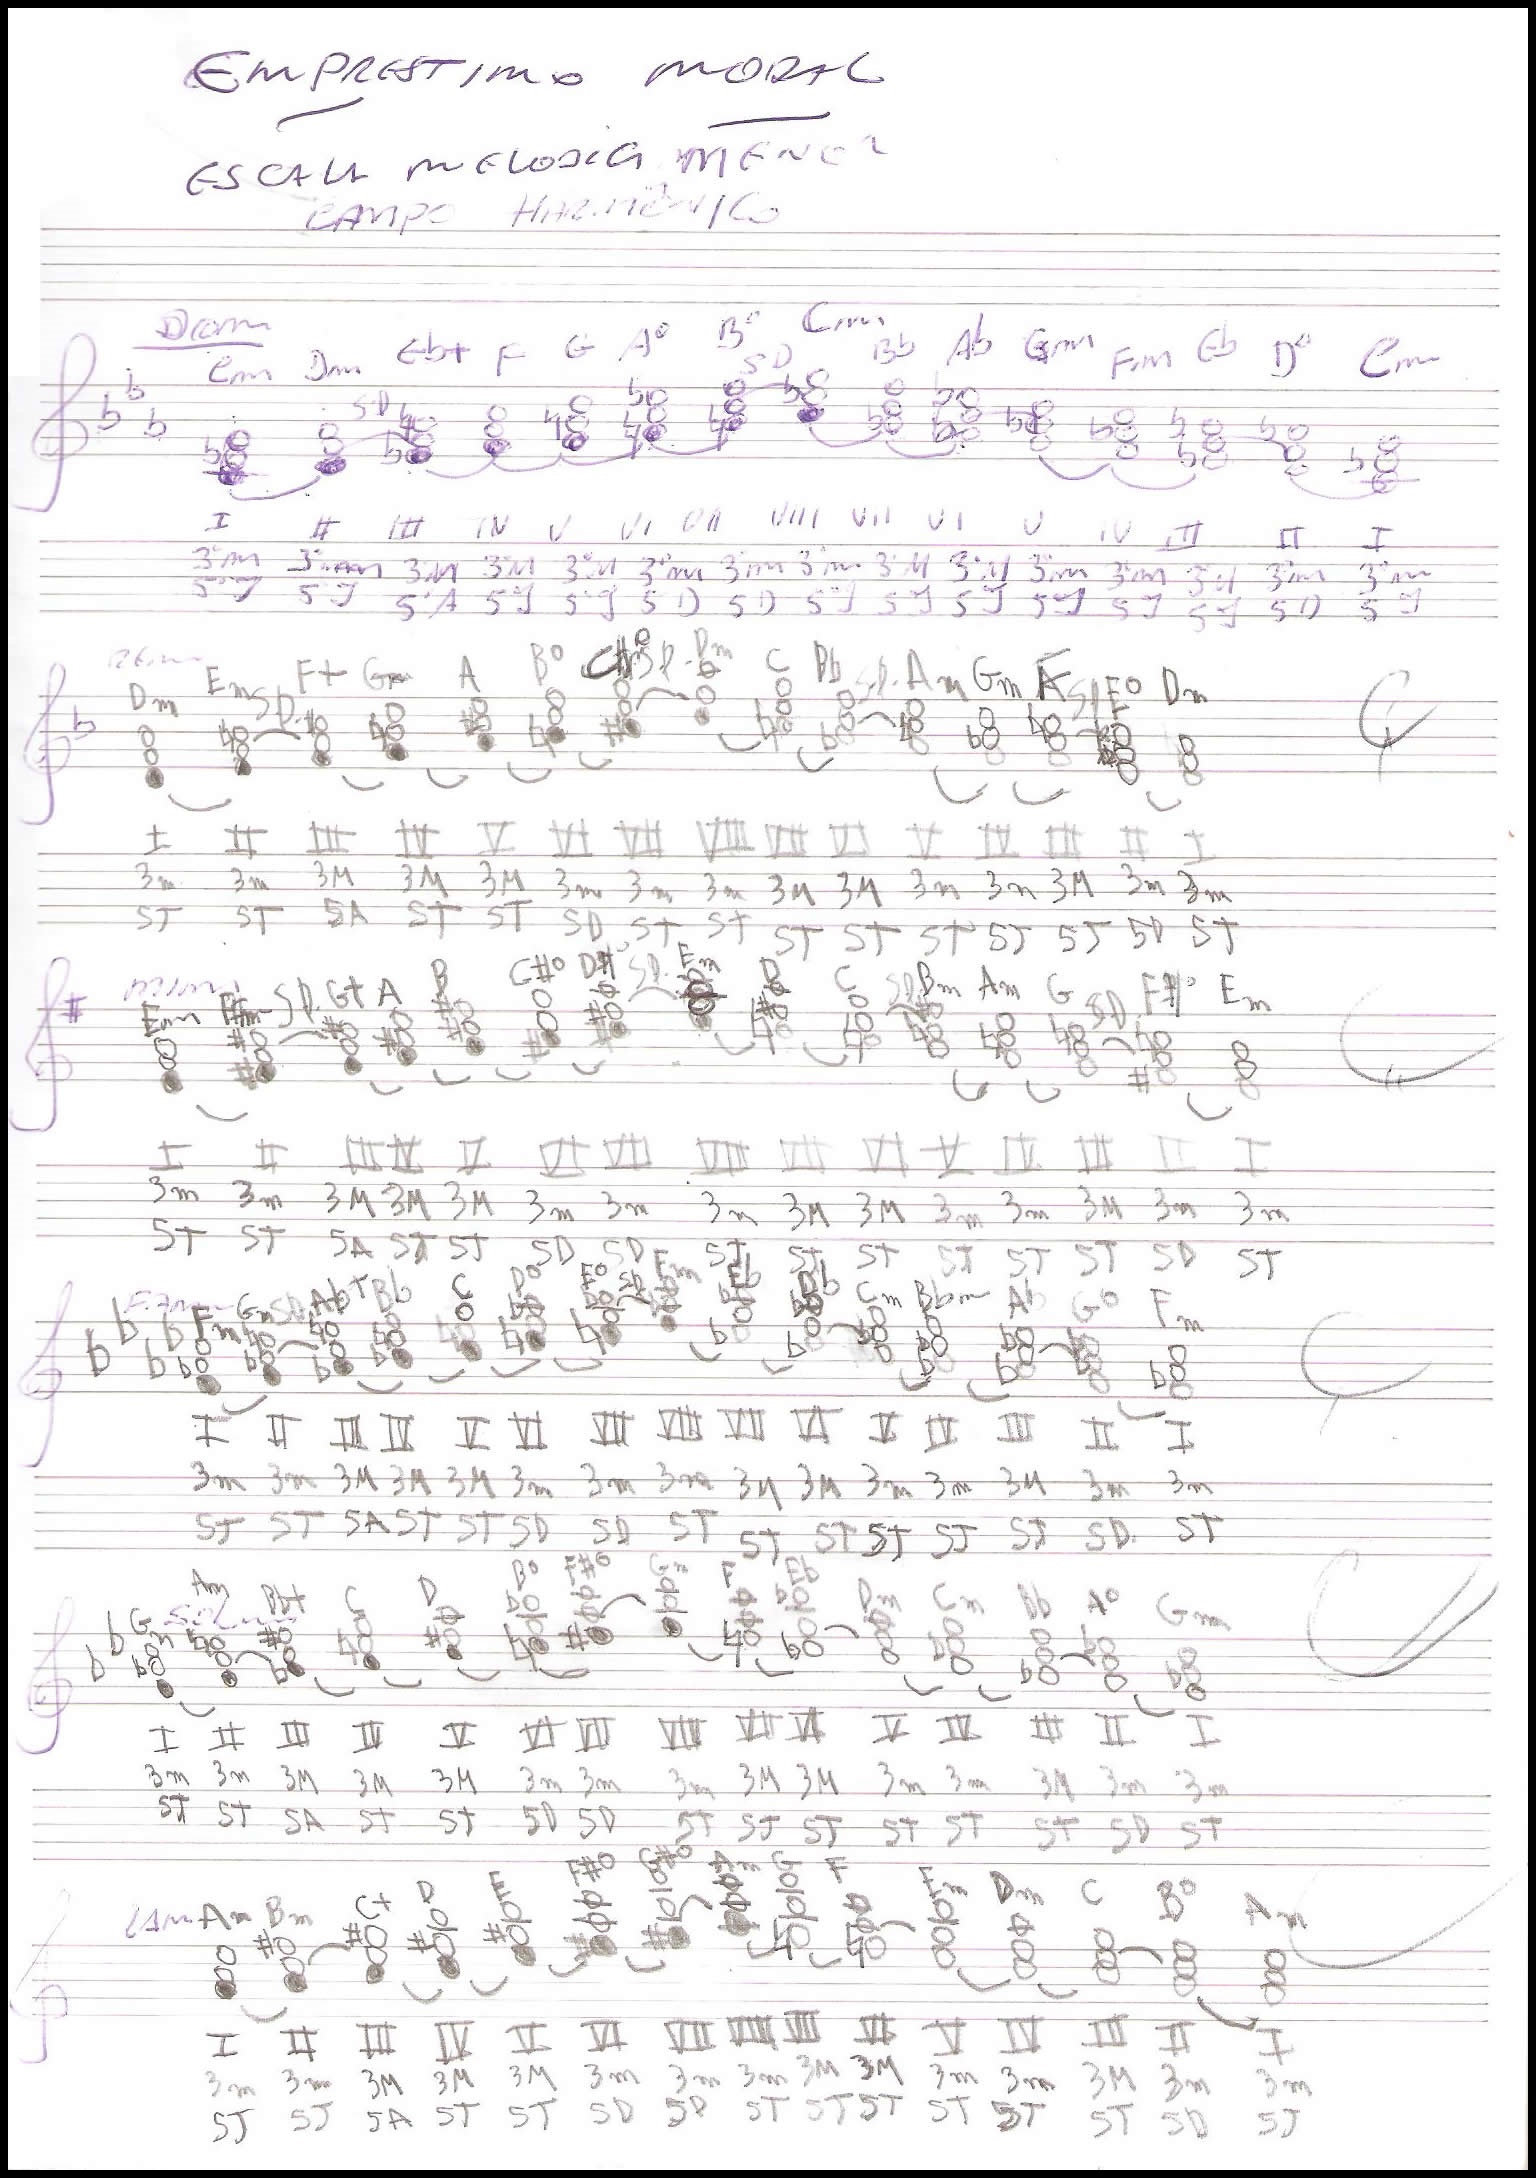 EMPRESTIMO MODAL
ESCALA MELODICA MENOR
CAMPO HARMÔNICO
Dom
Cm Dm Eb+ F G A° B° Cm Bb Ab Gm Fm Eb D° Cm
SD SD
I II III IV V VI VII VIII VII VI V IV III II I
3ªm 3ªm 3ªM 3ªM 3ªM 3ªm 3ªm 3ªm 3ªM 3ªM 3ªm 3ªm 3ªM 3ªm 3ªm
5ªJ 5ªJ 5ªA 5ªJ 5ªJ 5D 5D 5ªJ 5ªJ 5ªJ 5ªJ 5ªJ 5ªJ 5D 5ªJ
REm
Dm Em SD. F+ Gm A B° C#° SD. Dm C Bb SD. Am Gm F SD E° Dm
I II III IV V VI VII VIII VII VI V IV III II I
3m 3m 3M 3M 3M 3m 3m 3m 3M 3M 3m 3m 3M 3m 3m
5J 5J 5A 5J 5J 5D 5J 5J 5J 5J 5J 5J 5J 5D 5J
MIm
Em F#m SD. G+ A B C#° D#° SD. Em D C SD. Bm Am G SD F#° Em
I II III IV V VI VII VIII VII VI V IV III II I
3m 3m 3M 3M 3M 3m 3m 3m 3M 3M 3m 3m 3M 3m 3m
5J 5J 5A 5J 5J 5D 5D 5J 5J 5J 5J 5J 5J 5D 5J
FAm
Fm Gm SD Ab+ Bb C D° E° SD Fm Eb Db Cm Bbm Ab G° Fm
I II III IV V VI VII VIII VII VI V IV III II I
3m 3m 3M 3M 3M 3m 3m 3m 3M 3M 3m 3m 3M 3m 3m
5J 5J 5A 5J 5J 5D 5D 5J 5J 5J 5J 5J 5J 5D. 5J
SOLm
Gm Am Bb+ C D B° F#° Gm F Eb Dm Cm Bb A° Gm
I II III IV V VI VII VIII VII VI V IV III II I
3m 3m 3M 3M 3M 3m 3m 3m 3M 3M 3m 3m 3M 3m 3m
5J 5J 5A 5J 5J 5D 5D 5J 5J 5J 5J 5J 5J 5D 5J
LAm
Am Bm C+ D E F#° G#° Am G F Em Dm C B° Am
I II III IV V VI VII VIII VII VI V IV III II I
3m 3m 3M 3M 3M 3m 3m 3m 3M 3M 3m 3m 3M 3m 3m
5J 5J 5A 5J 5J 5D 5D 5J 5J 5J 5J 5J 5J 5D 5J